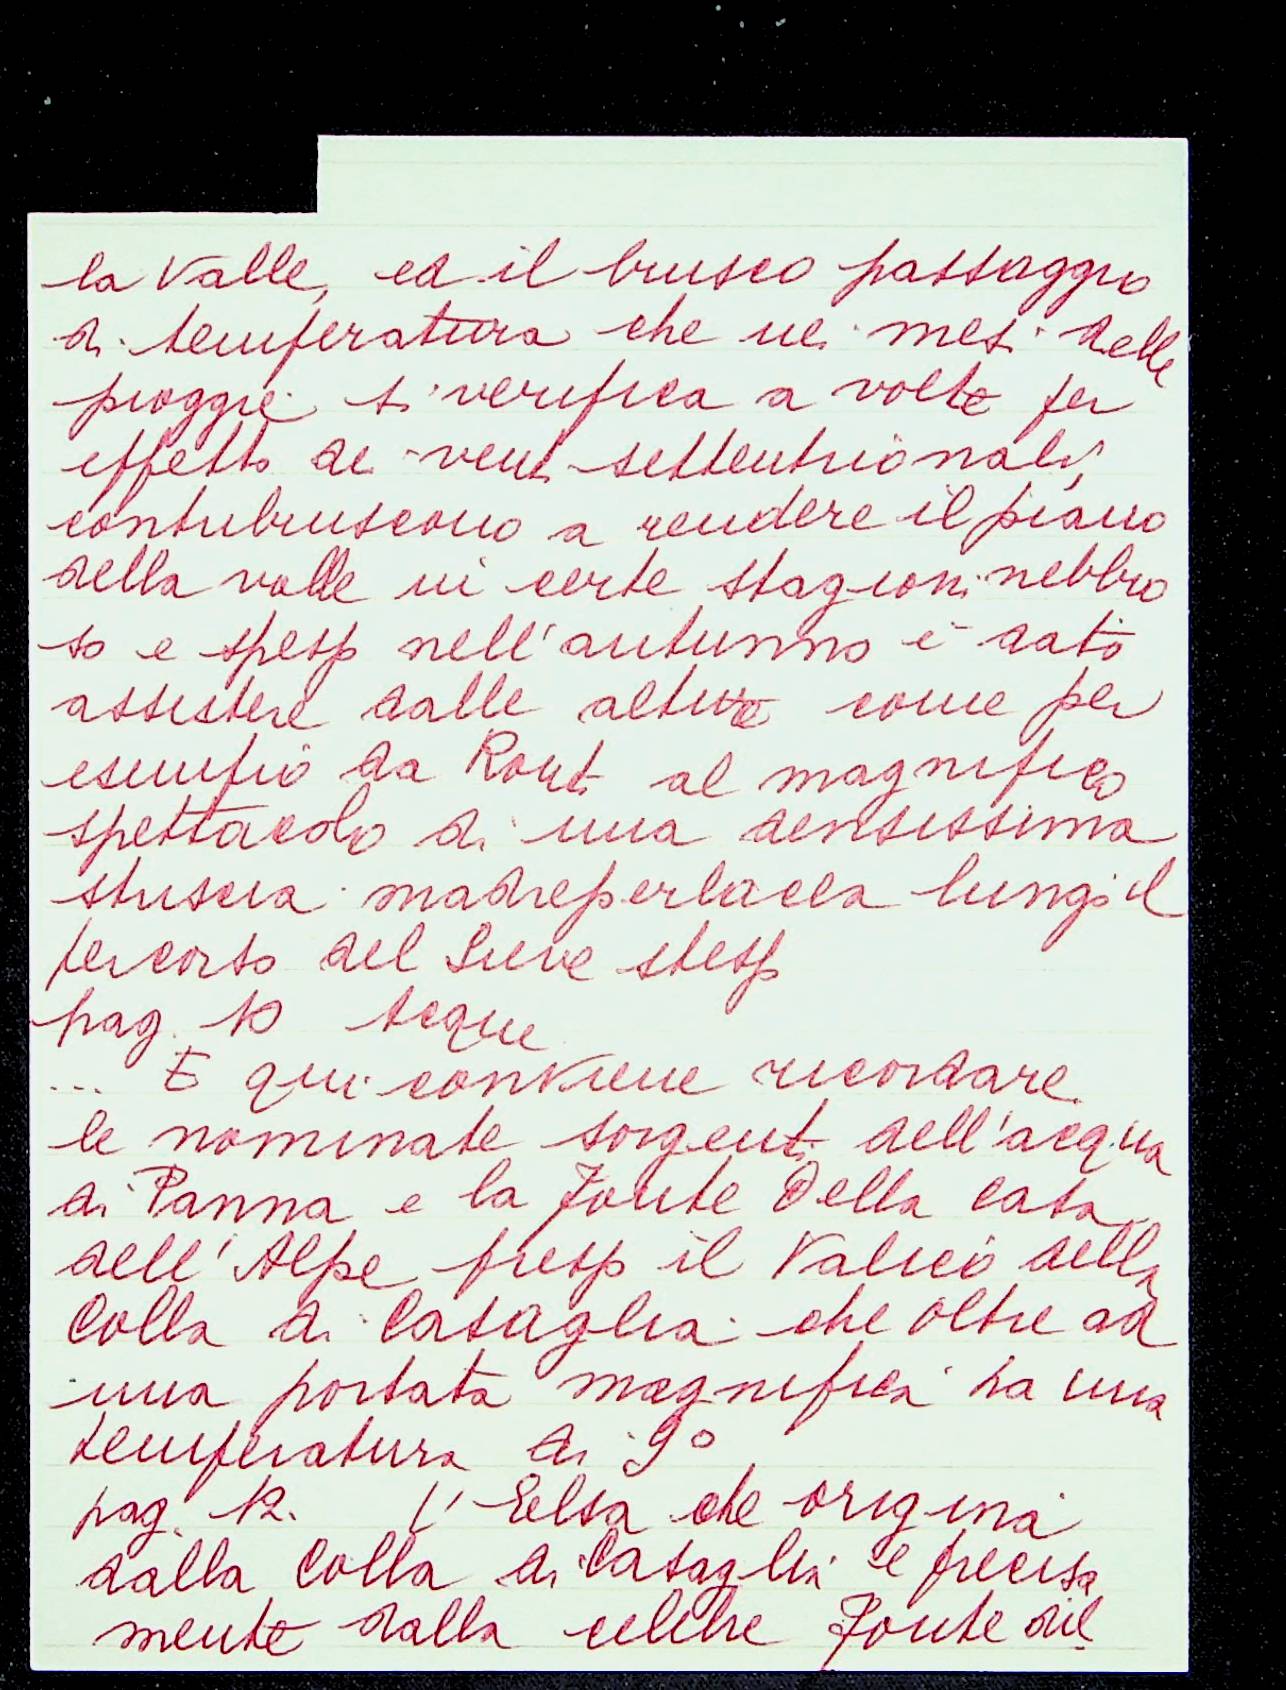 la Valle, ed il brusco passaggio
di temperatura che nei mesi delle
pioggie si verifica a volte per
effetto dei venti settentrionali,
contribuiscono a rendere il piano
della valle in certe stagioni nebbio
so e spesso nell'autunno è dato
assistere dalle alture come per
esempio da Ronti al magnifico
spettacolo di una densissima
striscia madreperlacea lungo il
percorso del Sieve stesso
pag. 10 Acque
... E qui conviene ricordare
le nominate sorgenti dell'acqua
di Panna e la Fonte Della Casa
dell'Alpe presso il Valico della
Colla di Casaglia che oltre ad
una portata magnifica ha una
temperatura di 9°
pag. 12. l'Elsa che origina
dalla Colla di Casaglia e precisa
mente dalla celebre Fonte del